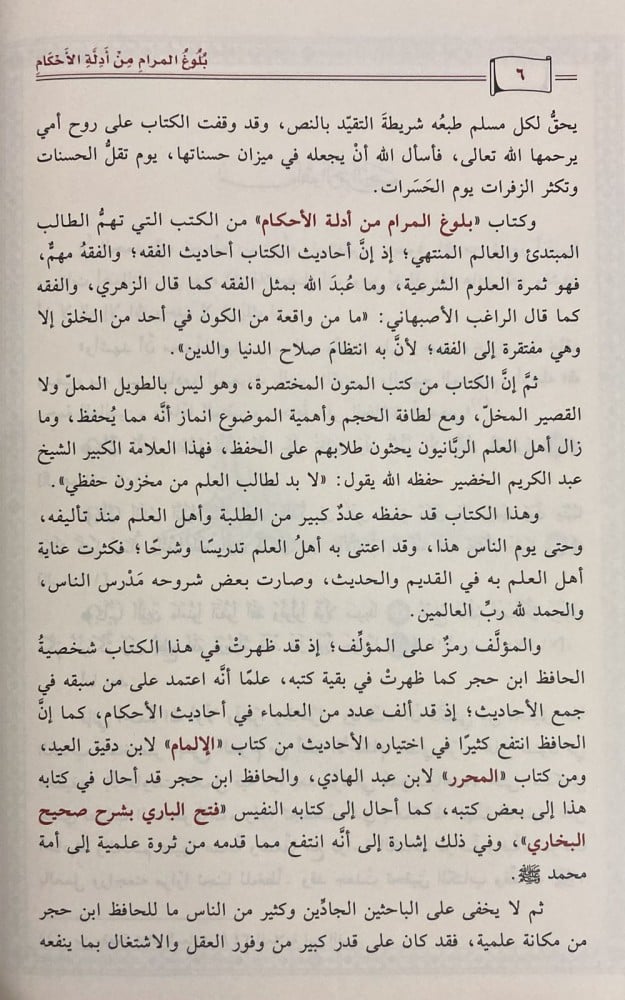 بُلُوغُ المرامِ مِنْ أَدِلَّةِ الأَحْكَامِ
٦
يحقُّ لكل مسلم طبعُه شريطةَ التقيّد بالنص، وقد وقفت الكتاب على روح أمي
يرحمها الله تعالى، فأسأل الله أنْ يجعله في ميزان حسناتها، يوم تقلُّ الحسنات
وتكثر الزفرات يوم الحَسَرات.
وكتاب «بلوغ المرام من أدلة الأحكام» من الكتب التي تهمُّ الطالب
المبتدئ والعالم المنتهي؛ إذ إنَّ أحاديث الكتاب أحاديث الفقه؛ والفقهُ مهمٌّ،
فهو ثمرة العلوم الشرعية، وما عُبدَ الله بمثل الفقه كما قال الزهري، والفقه
كما قال الراغب الأصبهاني: «ما من واقعة من الكون في أحد من الخلق إلا
وهي مفتقرة إلى الفقه؛ لأنَّ به انتظامَ صلاح الدنيا والدين».
ثمَّ إنَّ الكتاب من كتب المتون المختصرة، وهو ليس بالطويل المملّ ولا
القصير المخلّ، ومع لطافة الحجم وأهمية الموضوع انماز أنَّه مما يُحفظ، وما
زال أهل العلم الربَّانيون يحثون طلابهم على الحفظ، فهذا العلامة الكبير الشيخ
عبد الكريم الخضير حفظه الله يقول: «لا بد لطالب العلم من مخزون حفظي».
وهذا الكتاب قد حفظه عددٌ كبير من الطلبة وأهل العلم منذ تأليفه،
وحتى يوم الناس هذا، وقد اعتنى به أهلُ العلم تدريسًا وشرحًا؛ فكثرت عناية
أهل العلم به في القديم والحديث، وصارت بعض شروحه مَدْرس الناس،
والحمد لله ربِّ العالمين.
والمؤلَّف رمزٌ على المؤلِّف؛ إذ قد ظهرتْ في هذا الكتاب شخصيةُ
الحافظ ابن حجر كما ظهرتْ في بقية كتبه، علمًا أنَّه اعتمد على من سبقه في
جمع الأحاديث؛ إذ قد ألف عدد من العلماء في أحاديث الأحكام، كما إنَّ
الحافظ انتفع كثيرًا في اختياره الأحاديث من كتاب «الإلمام» لابن دقيق العيد،
ومن كتاب «المحرر» لابن عبد الهادي، والحافظ ابن حجر قد أحال في كتابه
هذا إلى بعض كتبه، كما أحال إلى كتابه النفيس «فتح الباري بشرح صحيح
البخاري»، وفي ذلك إشارة إلى أنَّه انتفع مما قدمه من ثروة علمية إلى أمة
محمد ﷺ.
ثم لا يخفى على الباحثين الجادِّين وكثير من الناس ما للحافظ ابن حجر
من مكانة علمية، فقد كان على قدر كبير من وفور العقل والاشتغال بما ينفعه